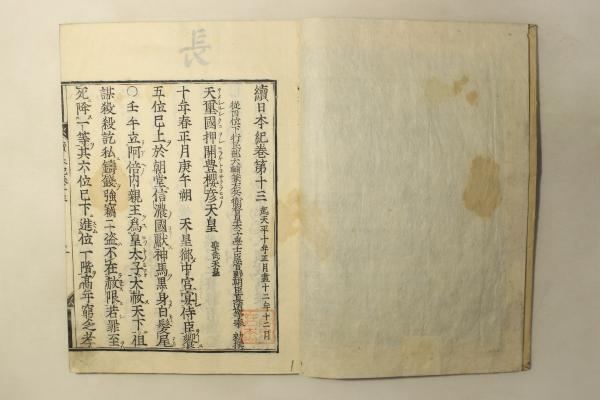 續日本紀卷第十三 起天平十年正月盡十二年十二月
從四位下行民部大輔兼左兵衛督皇太子學士臣菅野朝臣眞道等奉 勅撰
天璽國押開豊櫻彦天皇 聖武天皇
十年春正月庚午朔 天皇御中宮宴侍臣饗
五位已上於朝堂信濃國獻神馬黒身白髪尾
○壬午立阿倍内親王爲皇太子大赦天下但
謀殺殺訖私鑄錢強竊二盗不在赦限若罪至
死降一等其六位已下進位一階高年窮乏孝
長